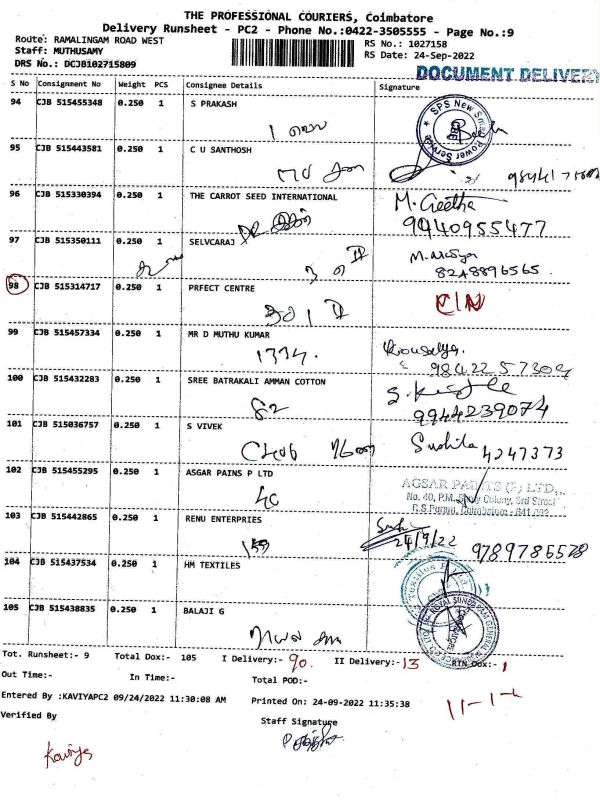 THE PROFESSIONAL COURIERS, Coimbatore
Delivery Runsheet - PC2 - Phone No.:0422-3505555 - Page No.:9
Route: RAMALINGAM ROAD WEST
RS No.: 1027158
Staff: MUTHUSAMY
RS Date: 24-Sep-2022
DRS No.: DCJB102715809
DOCUMENT DELIVERY
S No Consignment No Weight PCS Consignee Details Signature
94 CJB 515455348 0.250 1 S PRAKASH
SPS New Smart Power Service
95 CJB 515443581 0.250 1 C U SANTHOSH
96 CJB 515330394 0.250 1 THE CARROT SEED INTERNATIONAL M. Geetha
9940955477
97 CJB 515350111 0.250 1 SELVCARAJ
8248896565
98 CJB 515314717 0.250 1 PRFECT CENTRE
99 CJB 515457334 0.250 1 MR D MUTHU KUMAR
1334. 9842257309
100 CJB 515432283 0.250 1 SREE BATRAKALI AMMAN COTTON
82 9944239074
101 CJB 515036757 0.250 1 S VIVEK Sushila 4247373
102 CJB 515455295 0.250 1 ASGAR PAINS P LTD
AGSAR PAINTS (P) LTD.,
No. 40, P.M. Samy Colony, 3rd Street
R.S Puram, Coimbatore - 641 002
103 CJB 515442865 0.250 1 RENU ENTERPRIES
24/9/22 9789786578
104 CJB 515437534 0.250 1 HM TEXTILES
105 CJB 515438835 0.250 1 BALAJI G
Tot. Runsheet:- 9 Total Dox:- 105 I Delivery:- 90. II Delivery:- 13 RTN Dox:- 1
Out Time:- In Time:- Total POD:-
Entered By :KAVIYAPC2 09/24/2022 11:30:08 AM Printed On: 24-09-2022 11:35:38
Verified By Staff Signature
Kaviya